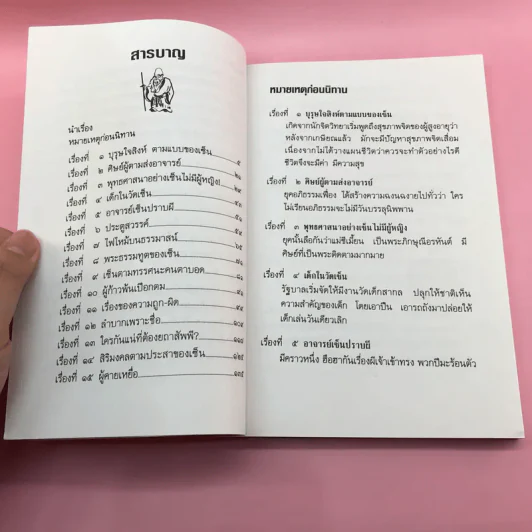 สารบาญ
นำเรื่อง
หมายเหตุก่อนนิทาน
เรื่องที่ ๑ บุรุษใจสิงห์ ตามแบบของเซ็น ๕
เรื่องที่ ๒ ศิษย์ผู้ตามส่งอาจารย์
เรื่องที่ ๓ พุทธศาสนาอย่างเซ็นไม่มีผู้หญิง!
เรื่องที่ ๔ เด็กในวัดเซ็น
เรื่องที่ ๕ อาจารย์เซ็นปราบผี
เรื่องที่ ๖ ประตูสวรรค์
เรื่องที่ ๗ ไฟไหม้บนธรรมาสน์
เรื่องที่ ๘ พระธรรมทูตของเซ็น
เรื่องที่ ๙ เซ็นตามทรรศนะคนตาบอด
เรื่องที่ ๑๐ ผู้ก้าวพ้นเปือกตม
เรื่องที่ ๑๑ เรื่องของความถูก-ผิด
เรื่องที่ ๑๒ ลำบากเพราะชื่อ
เรื่องที่ ๑๓ ใครกันแน่ที่ต้องยถาสัพพี?
เรื่องที่ ๑๔ สิริมงคลตามประสาของเซ็น
เรื่องที่ ๑๕ ผู้คายเหยื่อ
หมายเหตุก่อนนิทาน
เรื่องที่ ๑ บุรุษใจสิงห์ตามแบบของเซ็น
เกิดจากนักจิตวิทยาเริ่มพูดถึงสุขภาพจิตของผู้สูงอายุว่า
หลังจากเกษียณแล้ว มักจะมีปัญหาสุขภาพจิตเสื่อม
เนื่องจากไม่ได้วางแผนชีวิตว่าควรจะทำตัวอย่างไรดี
ชีวิตจึงจะมีค่า มีความสุข
เรื่องที่ ๒ ศิษย์ผู้ตามส่งอาจารย์
ยุคอภิธรรมเฟื่อง ได้สร้างความฉงนฉงายไปทั่วว่า ใคร
ไม่เรียนอภิธรรมจะไม่มีวันบรรลุนิพพาน
เรื่องที่ ๓ พุทธศาสนาอย่างเซ็นไม่มีผู้หญิง
ยุคนั้นลือกันว่าแม่ชีเมี้ยน เป็นพระภิกษุณีอรหันต์ มี
ศิษย์ที่เป็นพระติดตามมากมาย
เรื่องที่ ๔ เด็กในวัดเซ็น
รัฐบาลเริ่มจัดให้มีงานวัดเด็กสากล ปลุกให้ชาติเห็น
ความสำคัญของเด็ก โดยเอาปืน เอารถถังมาปล่อยให้
เด็กเล่นวันเดียวเลิก
เรื่องที่ ๕ อาจารย์เซ็นปราบผี
มีคราวหนึ่ง ฮือฮากันเรื่องผีเจ้าเข้าทรง พวกปีมะร้อนตัว